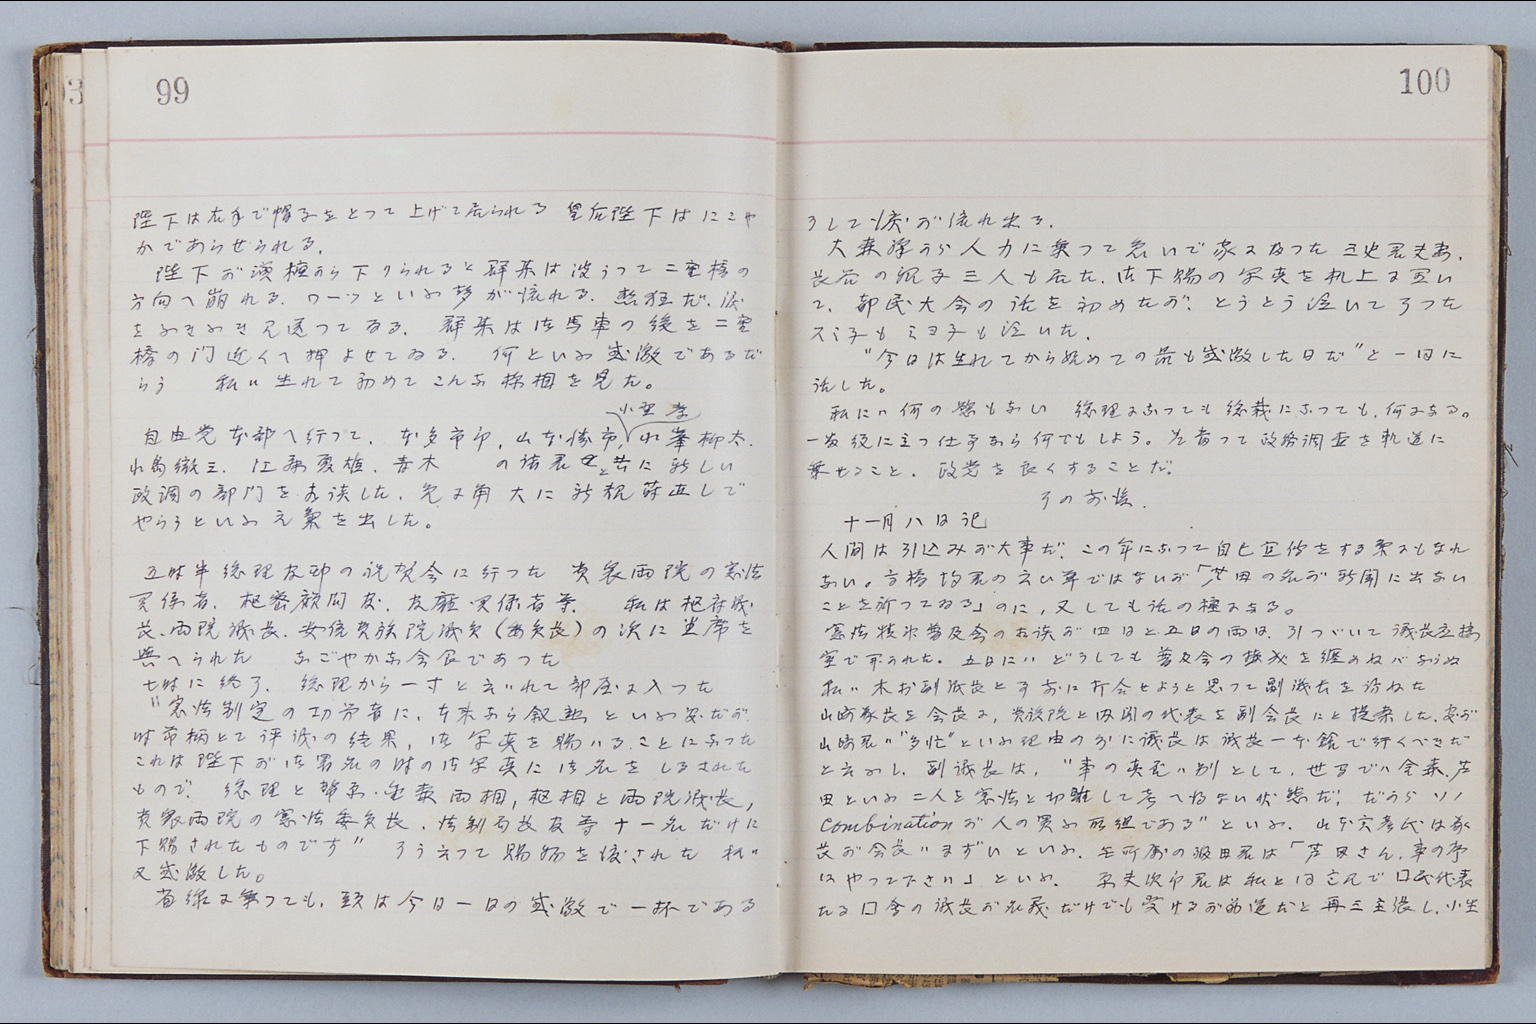 99
陛下は右手で帽子をとつて上げて居られる 皇后陛下はにこや
かであらせられる。
陛下が演壇から下りられると群集は波うつて二重橋の
方向へ崩れる。ワーツといふ声が流れる。熱狂だ、涙
をふきふき見送つてゐる。群集は御馬車の後を二重
橋の門近くへ押よせてゐる。何といふ感激であるだ
らう 私は生れて初めてこんな様相を見た。
小笠
自由党本部へ行つて、本多市郎、山本勝市、
江藤夏雄、青木 の諸君と共に新しい
政調の部門を相談した。兎に角大に新規蒔直しで
やらうといふ元気を出した。
五時半総理官邸の祝賀会に行つた 貴衆両院の憲法
関係者、枢密顧問官、政府関係者等、私は枢府議
長、両院議長、安倍貴族院議員(委員長)の次に坐席を
与へられた なごやかな会食であつた
七時に終了。総理から一寸と云はれて部屋に入つた
"憲法制定の功労者に、本来なら叙勲といふ処だが
時節柄とて評議の結果、御写真を賜はることになつた
これは陛下が御署名の時の御写真に御名をしるされた
もので、総理と幣原、金森両相、枢相と両院議長、
貴衆両院の憲法委員長、法制局長官等十一名だけに
下賜されたものです" さう云つて賜物を渡された 私は
又感激した。
省線に乗つても、頭は今日一日の感激で一杯である
100
そして涙が流れ出る。
大森駅から人力に乗つて急いで家に帰つた 三史君夫妻、
長谷の親子三人も居た。御下賜の写真を机上に置い
て、都民大会の話を初めたが、とうとう泣いて了つた
スミ子もミヨ子も泣いた。
"今日は生れてから始めての最も感激した日だ"と一同に
話した。
私には何の慾もない 総理になつても総裁になつても、何になる。
一番役に立つ仕事なら何でもしよう。差当つて政務調査を軌道に
乗せること、政党を良くすることだ。
その前後。
十一月八日記
人間は引込みが大事だ。この年になつて自己宣伝をする気にもなれ
ない。石橋均君の云い草ではないが「芦田の名が新聞に出ない
ことを祈つてゐる」のに、又しても話の種になる。
憲法精神普及会の相談が四日と五日の両日、引つづいて議長応接
室で行はれた。五日にはどうしても普及会の機構を纏めねばならぬ
私は木村副議長とその前に打合せようと思つて副議長を訪ねた
山崎議長を会長に、貴族院と内閣の代表を副会長にと提案した。処が
山崎君は"多忙"といふ理由の外に議長は議長一本鎗で行くべきだ
と云ふし、副議長は、"事の真否は別として、世間では金森、芦
田といふ二人を憲法と切離して考へ得ない状態だ。だから ソノ
combinationが人の買ふ所以である"といふ。山本実彦氏は議
長が会長はまづいといふ。無所属の 田君は「芦田さん、事の序
にやつて下さい」といふ。 君は私と同意見で国民代表
たる国会の議長が名義だけでも受けるが筋道だと再三主張し、小生